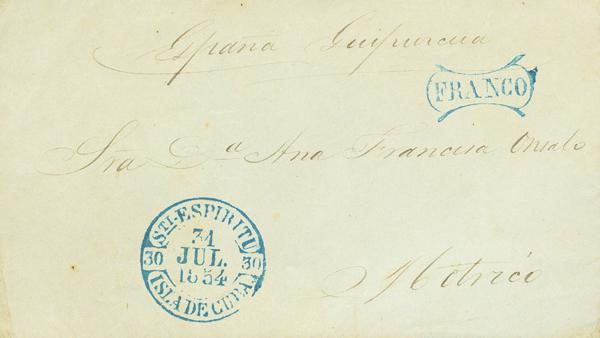 España Guipuzcua
FRANCO
Sra Dª Ana Francisca
STI-ESPIRITU
31
JUL.
1854
30 30
ISLA DE CUBA
Motrico